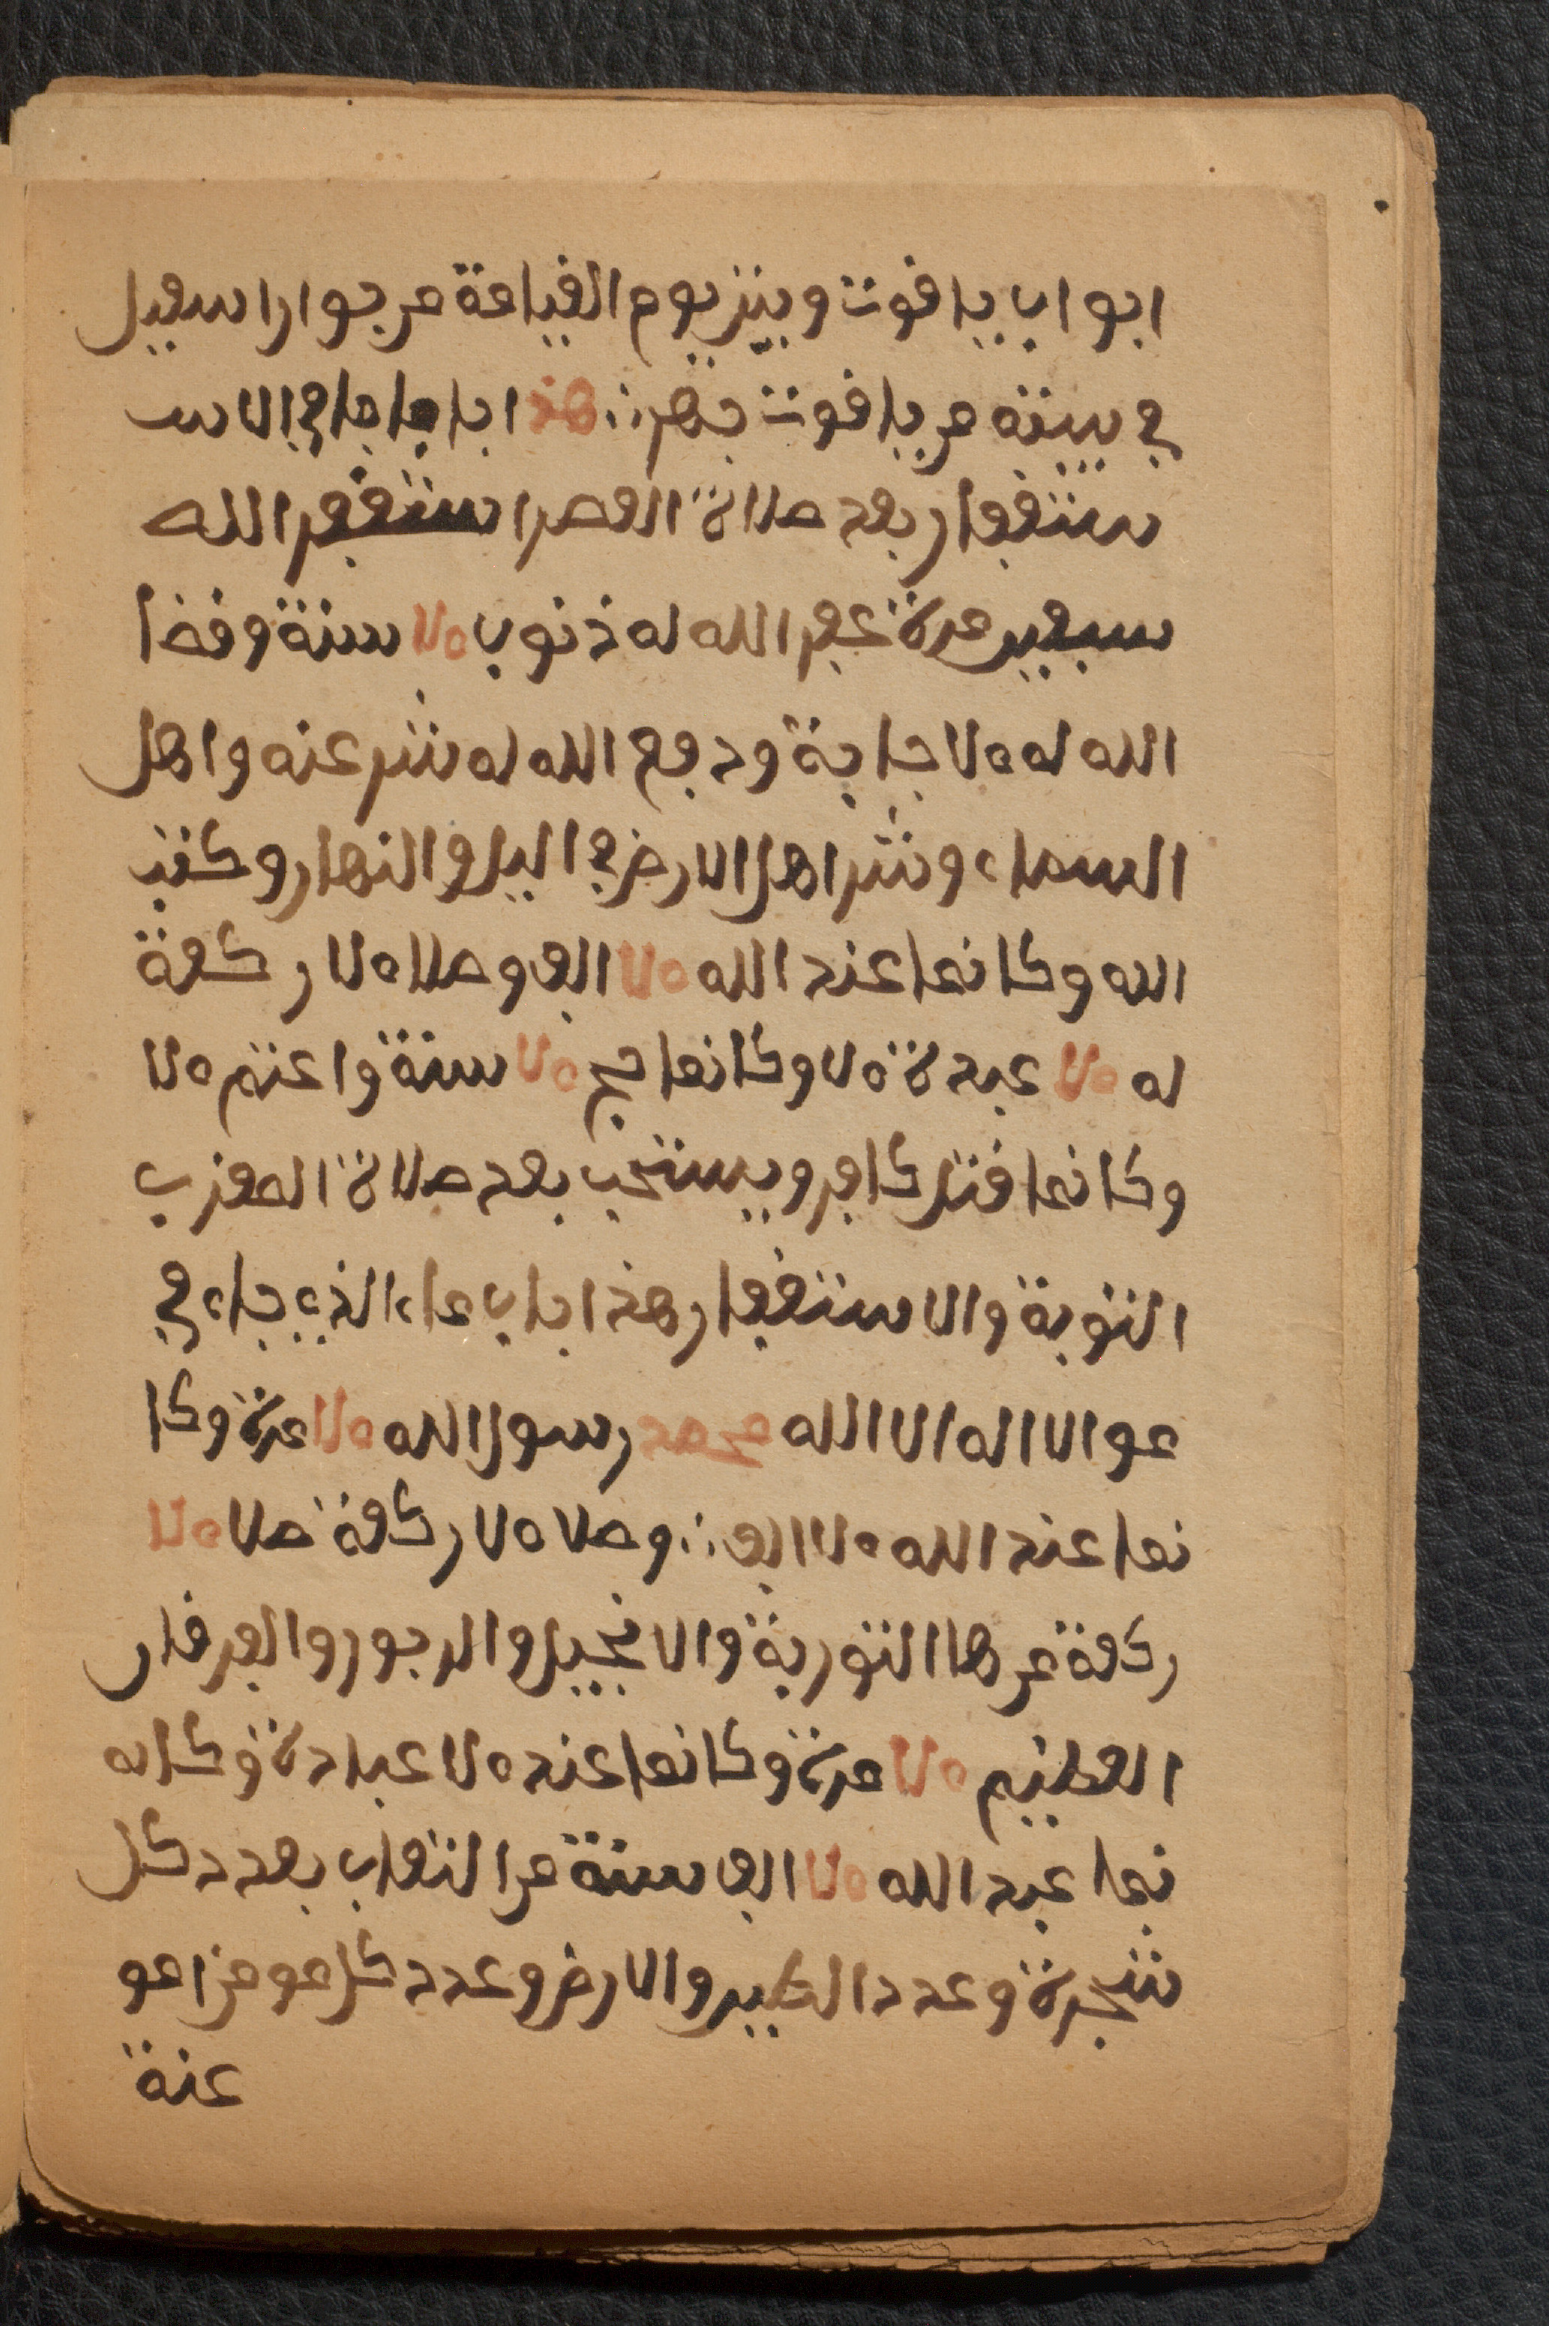 ابواب ياقوت وبيتر يوم القيامة من جوار اسمعيل
في بيته من ياقوت جهر هذا با ما جا في الاس
ستغفار بعد صلاة العصر استغفر الله
سبعين مرة غفر الله له ذنوب ملا سنة وقضا
الله له ملا جابة ودفع الله له شر عنه واهل
السماء وشر اهل الارض في اليل والنهار وكتب
الله وكانما عند الله ملا الف وصلا ملا ركعة
له ملا عبدة ملا وكانما حج ملا سنة واعتم ملا
وكانما قتل كافر ويستحب بعد صلاة المغرب
التوبة والاستغفار هذا باب ماء الذي جاء في
مو الا اله الا الله محمد رسول الله ملا مرة وكا
نما عند الله ملا الف وصلا ملا ركعة صلا ملا
ركعة من ها التورية والانجيل والزبور والفرقان
العظيم ملا مرة وكانما عنده ملا عبادة وكانه
نما عبد الله ملا الف سنة من الثواب بعدد كل
شجرة وعدد الطير والارض وعدد كل مو من امو
عنة